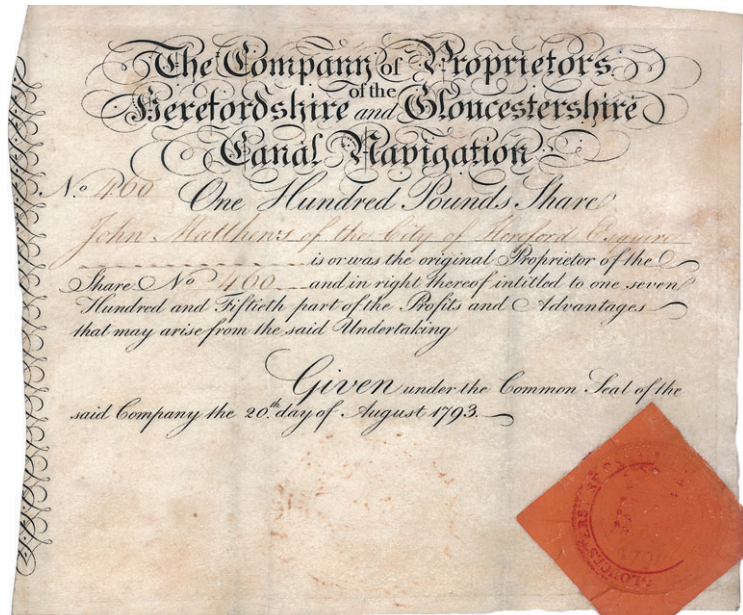 The Company of Proprietors
of the
Herefordshire and Gloucestershire
Canal Navigation
No. 460 One Hundred Pounds Share
John Matthews of the City of Hereford Esquire
is or was the original Proprietor of the
Share No 460 and in right thereof intitled to one seven
Hundred and Fiftieth part of the Profits and Advantages
that may arise from the said Undertaking
Given under the Common Seal of the
said Company the 20th. day of August 1793.